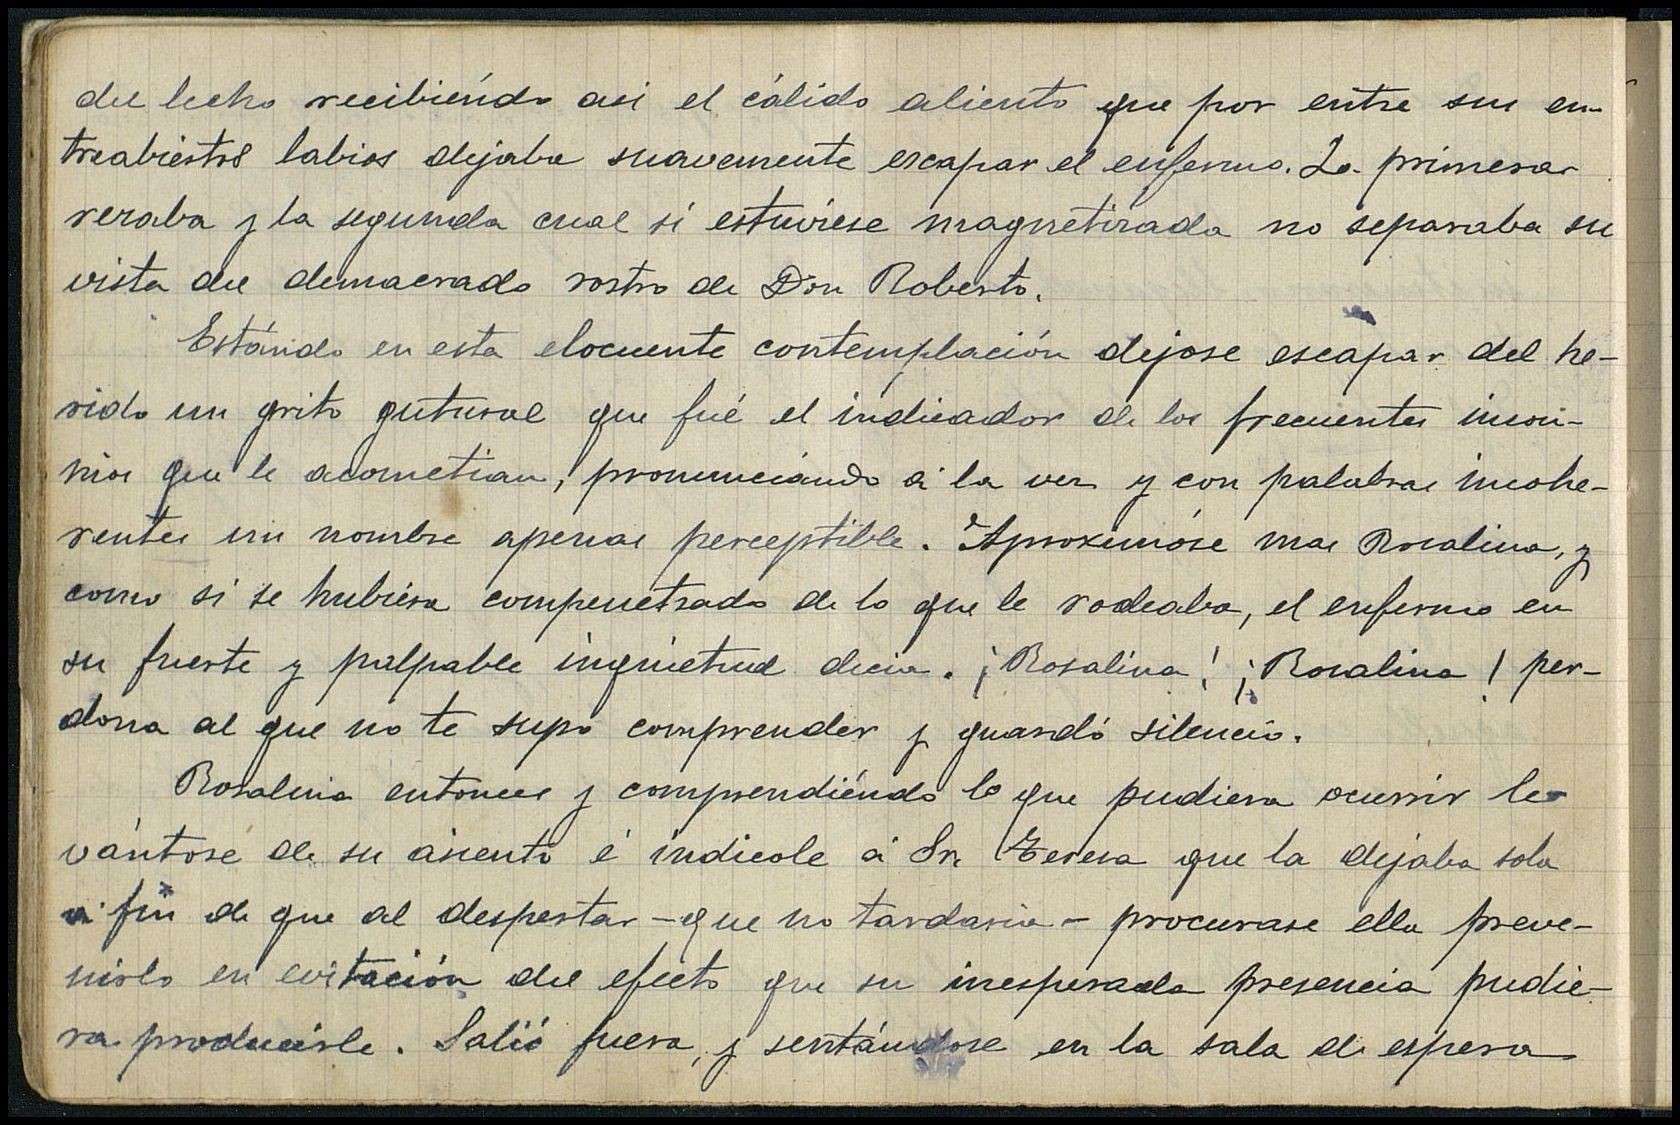 del lecho recibiéndo asi el cálido aliento que por entre sus en-
treabiertos labios dejaba suavemente escapar el enfermo. La primera
rezaba y la segunda cual si estuviese magnetizada no separaba su
vista del demacrado rostro de Don Roberto.
Estándo en esta elocuente contemplación dejose escapar del he-
rido un grito gutural que fué el indicador de los frecuentes insom-
nios que le acometian, pronunciándo á la vez y con palabras incohe-
rentes un nombre apenas perceptible. Aproximóse mas Rosalina, y
como si se hubiera compenetrado de lo que le rodeaba, el enfermo en
su fuerte y palpable inquietud decia. ¡Rosalina! ¡Rosalina! per-
dona al que no te supo comprender y guardó silencio.
Rosalina entonces y comprendiéndo lo que pudiera ocurrir le-
vántose de su asiento é indicole á Sr. Teresa que la dejaba sola
a fin de que al despertar - que no tardaria - procurase ella preve-
nirlo en evitación del efecto que su inesperada presencia pudie-
ra producirle. Salió fuera, y sentándose en la sala de espera